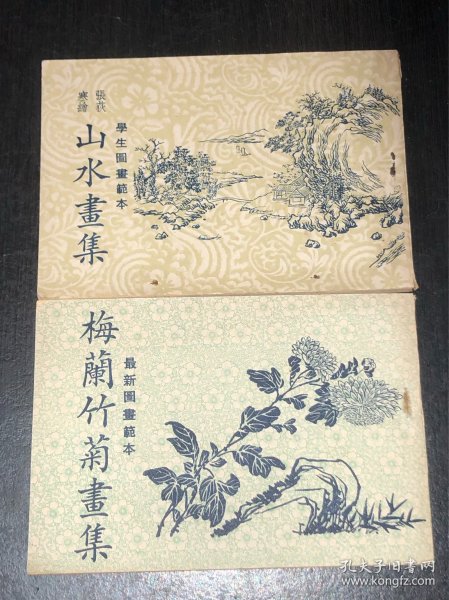 張荻
寒繪
學生圖畫範本
山水畫集
最新圖畫範本
梅蘭竹菊畫集
孔夫子旧书网
www.kongfz.com